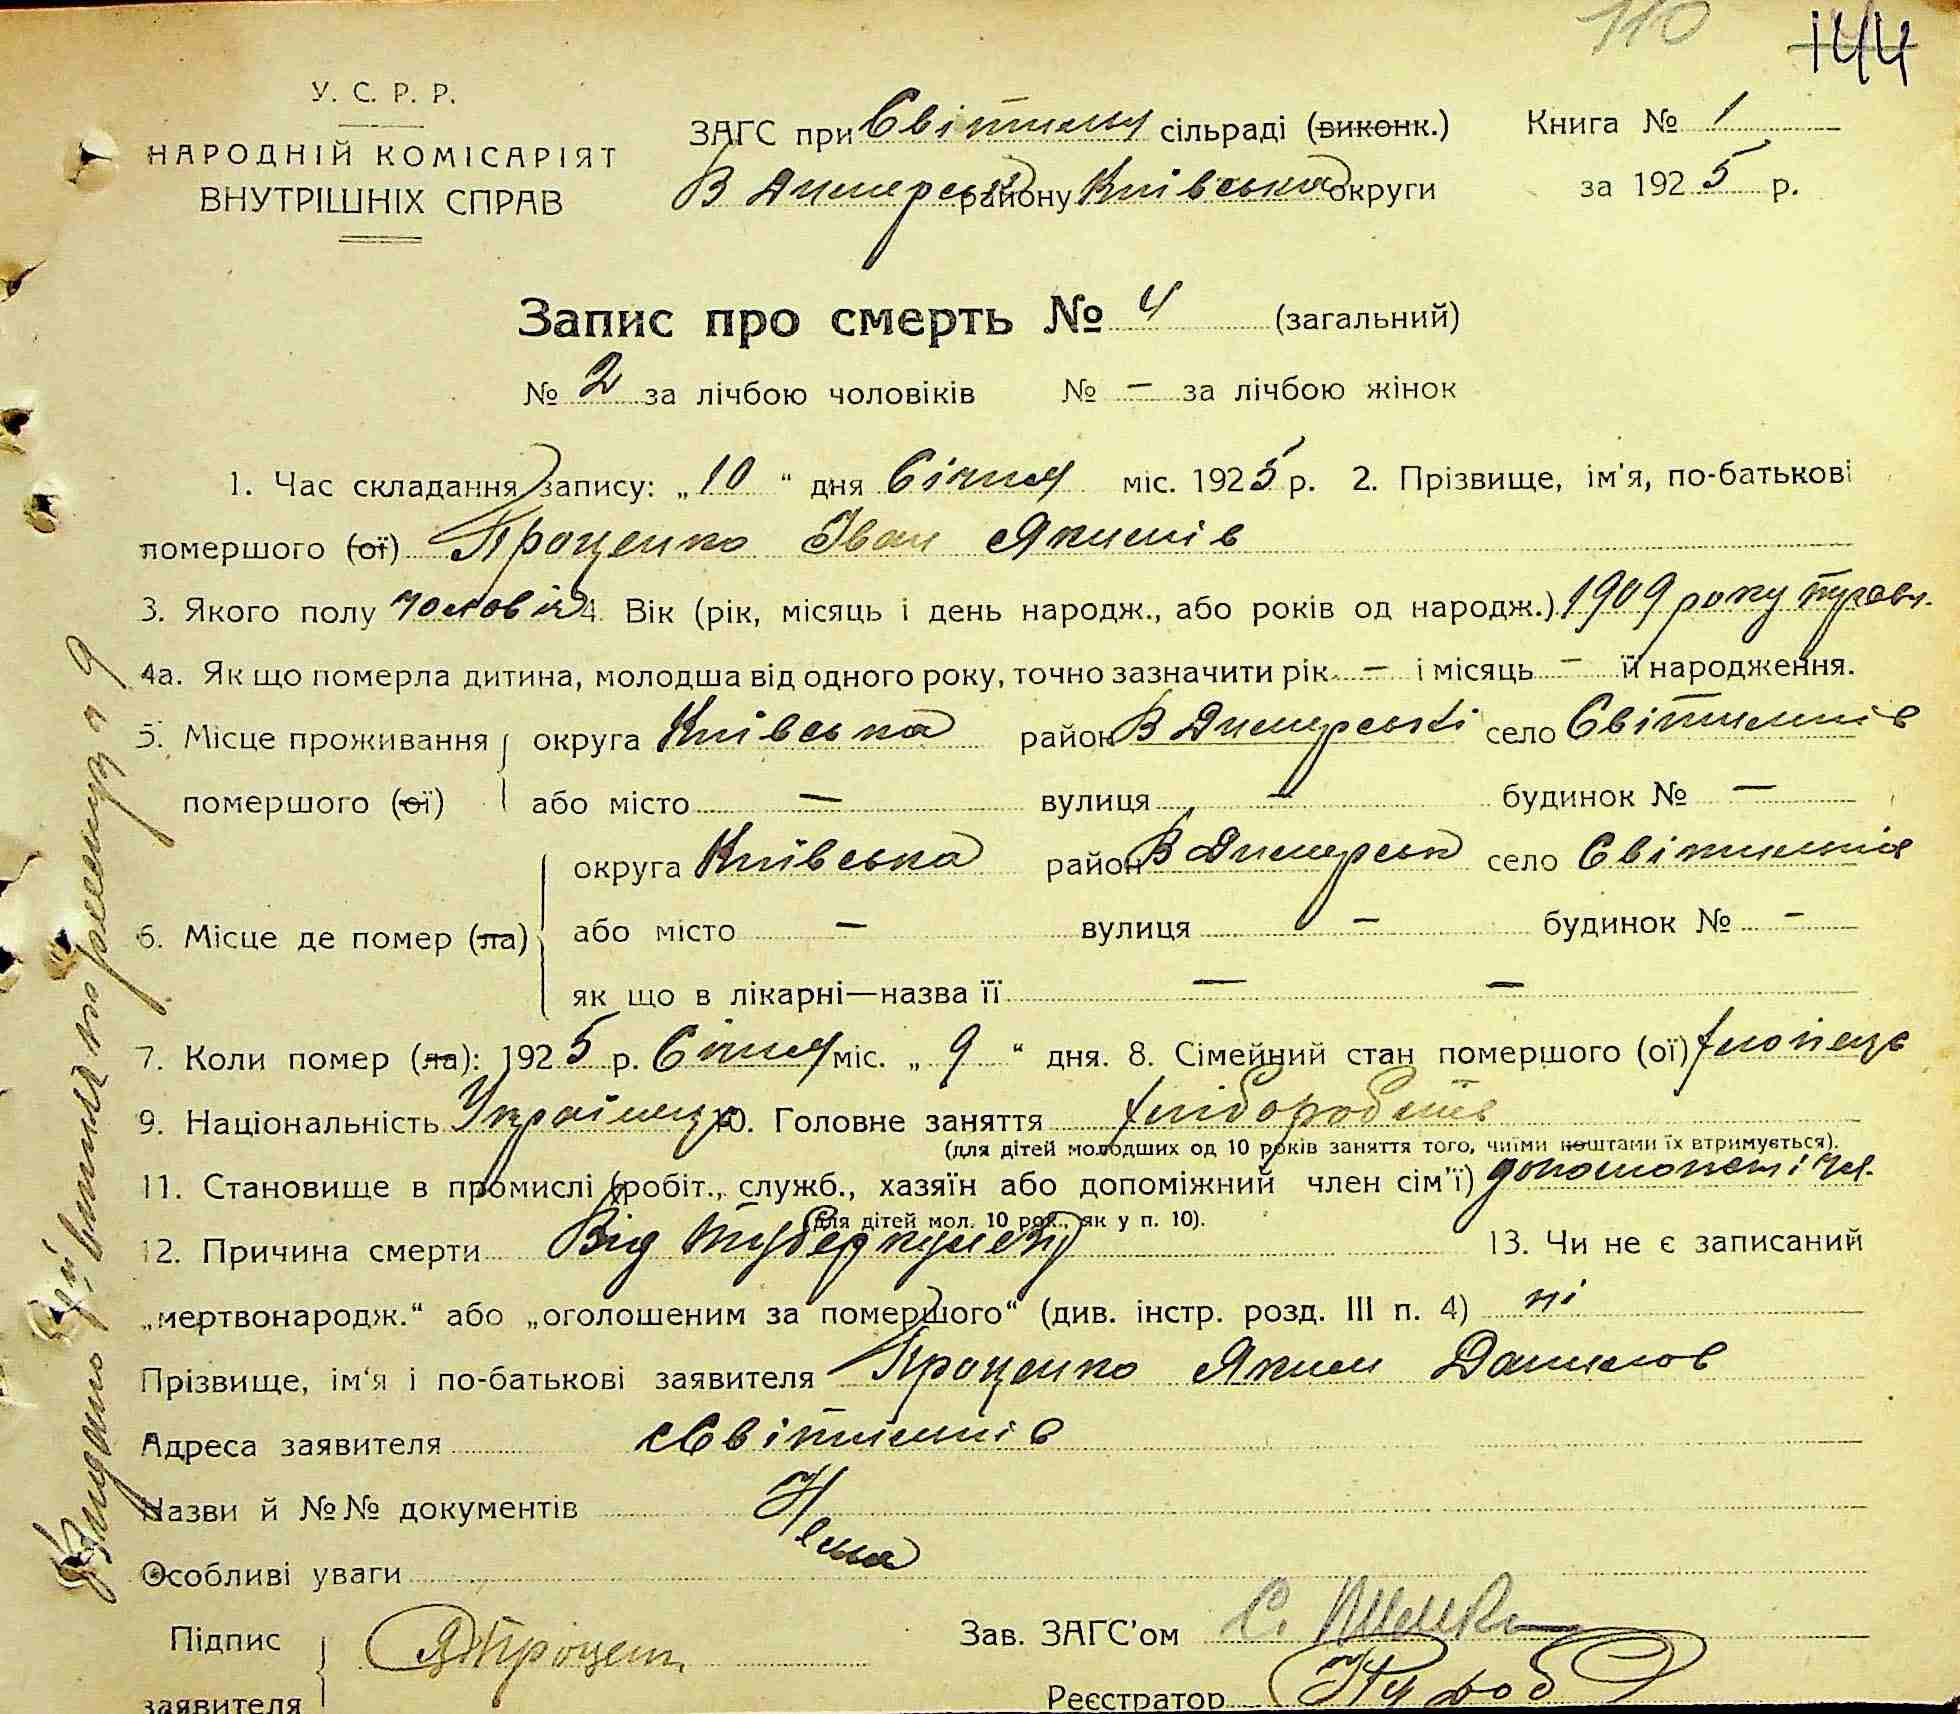 110 144
У. С. Р. Р.
НАРОДНІЙ КОМІСАРІЯТ
ВНУТРІШНІХ СПРАВ
ЗАГС при Світильн сільраді (виконк.) Книга № 1
В Димерськ району Київська округи за 1925 р.
Запис про смерть № 4 (загальний)
№ 2 за лічбою чоловіків № — за лічбою жінок
1. Час складання запису: „10“ дня Січня міс. 1925 р. 2. Прізвище, ім'я, по-батькові
помершого (ої) Проценко Іван Якимів
3. Якого полу чоловіч 4. Вік (рік, місяць і день народж., або років од народж.) 1909 року травн.
4а. Як що померла дитина, молодша від одного року, точно зазначити рік — і місяць — її народження.
5. Місце проживання округа Київська район В Димерські село
помершого (ої) або місто — вулиця — будинок № —
округа Київська район В Димерськ село
6. Місце де помер (ла) або місто — вулиця — будинок № —
як що в лікарні—назва її — —
7. Коли помер (ла): 1925 р. Січня міс. „9“ дня. 8. Сімейний стан помершого (ої) хлопець
9. Національність Українець 10. Головне заняття хліборобств
(для дітей молодших од 10 років заняття того, чиїми коштами їх втримується).
11. Становище в промислі (робіт., служб., хазяїн або допоміжний член сім'ї) чл.
(для дітей мол. 10 рок., як у п. 10).
12. Причина смерти Від туберкульозу 13. Чи не є записаний
„мертвонародж.“ або „оголошеним за помершого“ (див. інстр. розд. III п. 4) ні
Прізвище, ім'я і по-батькові заявителя Проценко Яким Данилов
Адреса заявителя
Назви й №№ документів Нема
Особливі уваги
Підпис Я Процен. Зав. ЗАГС'ом С.
заявителя Реєстратор